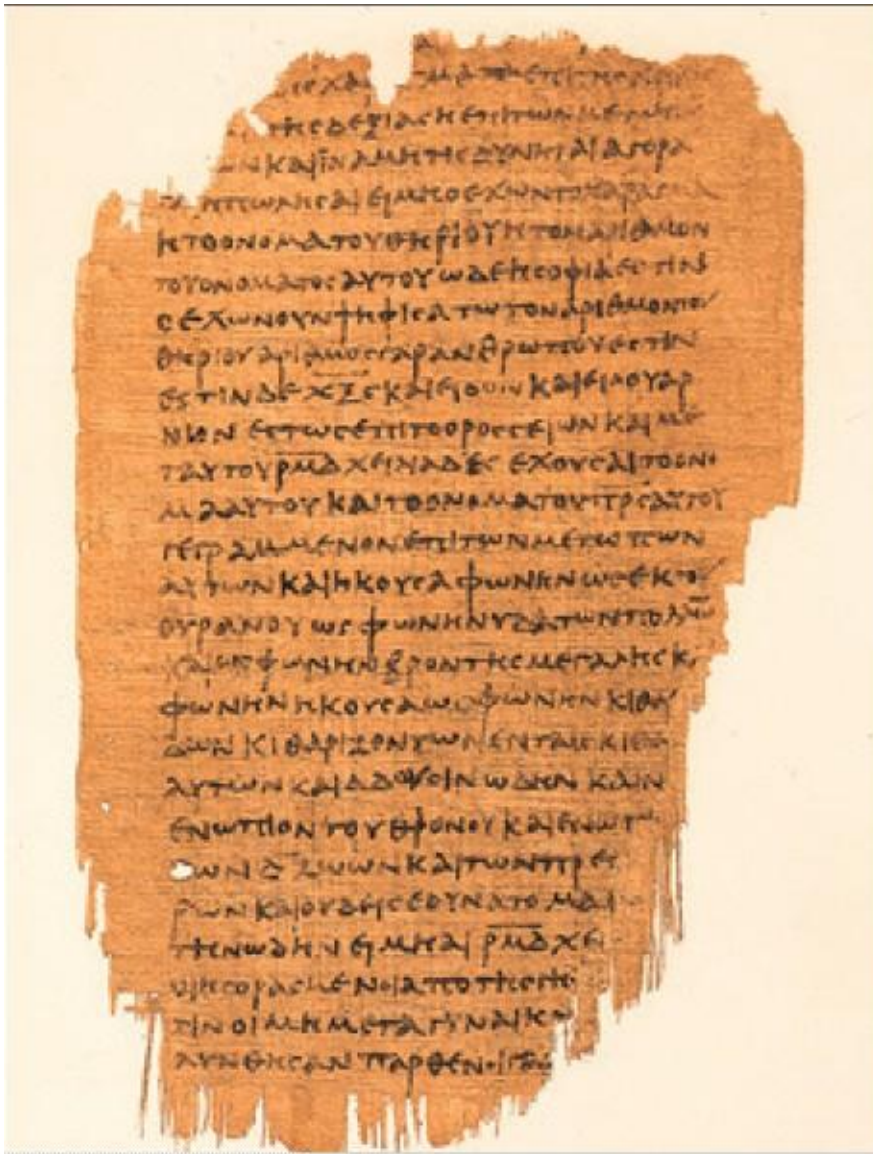 ΤΗϹΔΕΞΙΑϹΗΕΠΙΤΩΝΜΕΤΩ
ΩΝΚΑΙΪΝΑΜΗΤΙϹΔΥΝΗΤΑΙΑΓΟΡΑ
ΗΠΩΛΗϹΑΙΕΙΜΗΟΕΧΩΝΤΟΧΑΡΑΓΜΑ
ΗΤΟΟΝΟΜΑΤΟΥΘΗΡΙΟΥΗΤΟΝΑΡΙΘΜΟΝ
ΤΟΥΟΝΟΜΑΤΟϹΑΥΤΟΥΩΔΕΗϹΟΦΙΑΕϹΤΙΝ
ΟΕΧΩΝΟΥΝΨΗΦΙϹΑΤΩΤΟΝΑΡΙΘΜΟΝΤΟΥ
ΘΗΡΙΟΥΑΡΙΘΜΟϹΓΑΡΑΝΘΡΩΠΟΥΕϹΤΙΝ
ΕϹΤΙΝΔΕΧ̅Ξ̅Ϛ̅ΚΑΙΕΙΔΟΝΚΑΙΕΙΔΟΥΑΡ
ΝΙΟΝΕϹΤΩϹΕΠΙΤΟΟΡΟϹϹΕΙΩΝΚΑΙΜΕ
ΤΑΥΤΟΥΡ̅Μ̅Δ̅ΧΕΙΛΙΑΔΕϹΕΧΟΥϹΑΙΤΟΟΝΟ
ΜΑΑΥΤΟΥΚΑΙΤΟΟΝΟΜΑΤΟΥΠ̅Ρ̅Ϲ̅ΑΥΤΟΥ
ΓΕΓΡΑΜΜΕΝΟΝΕΠΙΤΩΝΜΕΤΩΠΩΝ
ΑΥΤΩΝΚΑΙΗΚΟΥϹΑΦΩΝΗΝΩϹΕΚΤΟΥ
ΟΥΡΑΝΟΥΩϹΦΩΝΗΝΥΔΑΤΩΝΠΟΛΛΩ̅
ΚΑΙΩϹΦΩΝΗΝΒΡΟΝΤΗϹΜΕΓΑΛΗϹΚ
ΦΩΝΗΝΗΚΟΥϹΑΩϹΦΩΝΗΝΚΙΘΑ
ΔΩΝΚΙΘΑΡΙΖΟΝΤΩΝΕΝΤΑΙϹΚΙΘΑ
ΑΥΤΩΝΚΑΙΑΔΟΥϹΙΝΩΔΗΝΚΑΙΝ
ΕΝΩΠΙΟΝΤΟΥΘΡΟΝΟΥΚΑΙΕΝΩΠ
ΤΩΝΔ̅ΖΩΩΝΚΑΙΤΩΝΠΡΕϹ
ΡΩΝΚΑΙΟΥΔΕΙϹΕΔΥΝΑΤΟΜΑΘ
ΤΗΝΩΔΗΝΕΙΜΗΑΙΡ̅Μ̅Δ̅ΧΕΙ
ΟΙΗΓΟΡΑϹΜΕΝΟΙΑΠΟΤΗϹΓΗϹ
ΤΙΝΟΙΜΗΜΕΤΑΓΥΝΑΙΚΩ
ΛΥΝΘΗϹΑΝΠΑΡΘΕΝΟΙΓΑΡ